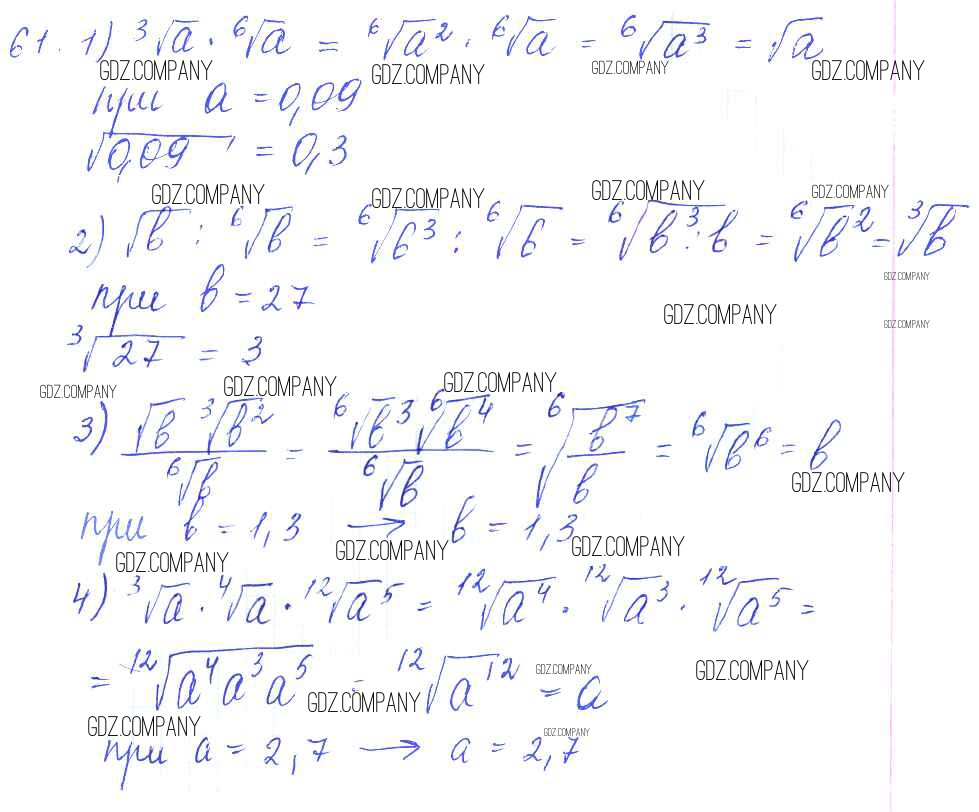 61. 1) ³√a · ⁶√a = ⁶√a² · ⁶√a = ⁶√a³ = √a
GDZ.COMPANY GDZ.COMPANY GDZ.COMPANY GDZ.COMPANY
при a = 0,09
√0,09 = 0,3
GDZ.COMPANY GDZ.COMPANY GDZ.COMPANY GDZ.COMPANY
2) √b : ⁶√b = ⁶√b³ : ⁶√b = ⁶√b³:b = ⁶√b² = ³√b
GDZ.COMPANY
при b = 27
GDZ.COMPANY GDZ.COMPANY
³√27 = 3
GDZ.COMPANY GDZ.COMPANY GDZ.COMPANY
3) √b ³√b² / ⁶√b = ⁶√b³ ⁶√b⁴ / ⁶√b = ⁶√(b⁷/b) = ⁶√b⁶ = b
GDZ.COMPANY
при b = 1,3 → b = 1,3
GDZ.COMPANY GDZ.COMPANY GDZ.COMPANY
4) ³√a · ⁴√a · ¹²√a⁵ = ¹²√a⁴ · ¹²√a³ · ¹²√a⁵ =
= ¹²√a⁴a³a⁵ = ¹²√a¹² = a
GDZ.COMPANY GDZ.COMPANY GDZ.COMPANY
GDZ.COMPANY GDZ.COMPANY
при a = 2,7 → a = 2,7